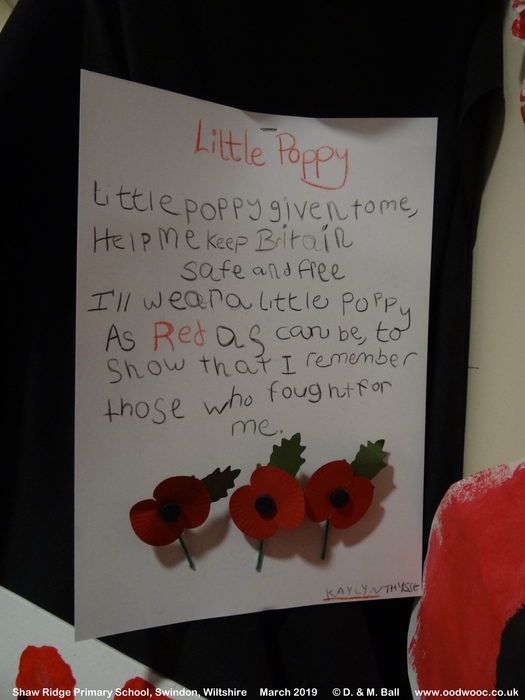 Little Poppy
Little poppy given to me,
Help me keep Britain
safe and free
I'll wear a little poppy
As Red as can be, to
show that I remember
those who fought for
me.
KAYLYN THYSSE
Shaw Ridge Primary School, Swindon, Wiltshire March 2019 © D. & M. Ball www.oodwooc.co.uk